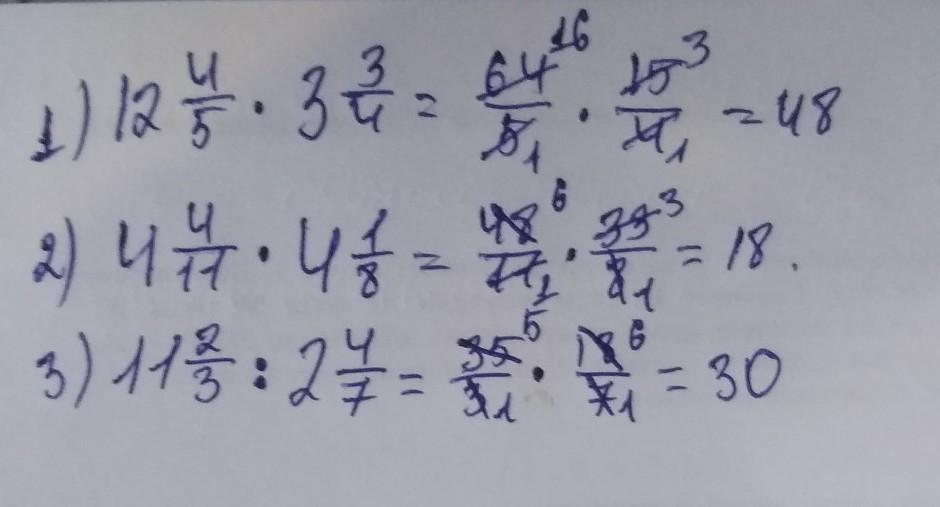 1) 12 4/5 · 3 3/4 = 64/5 16/1 · 15/4 3/1 = 48
2) 4 4/11 · 4 1/8 = 48/11 6/1 · 33/8 3/1 = 18.
3) 11 2/3 : 2 4/7 = 35/3 5/1 · 18/7 6/1 = 30